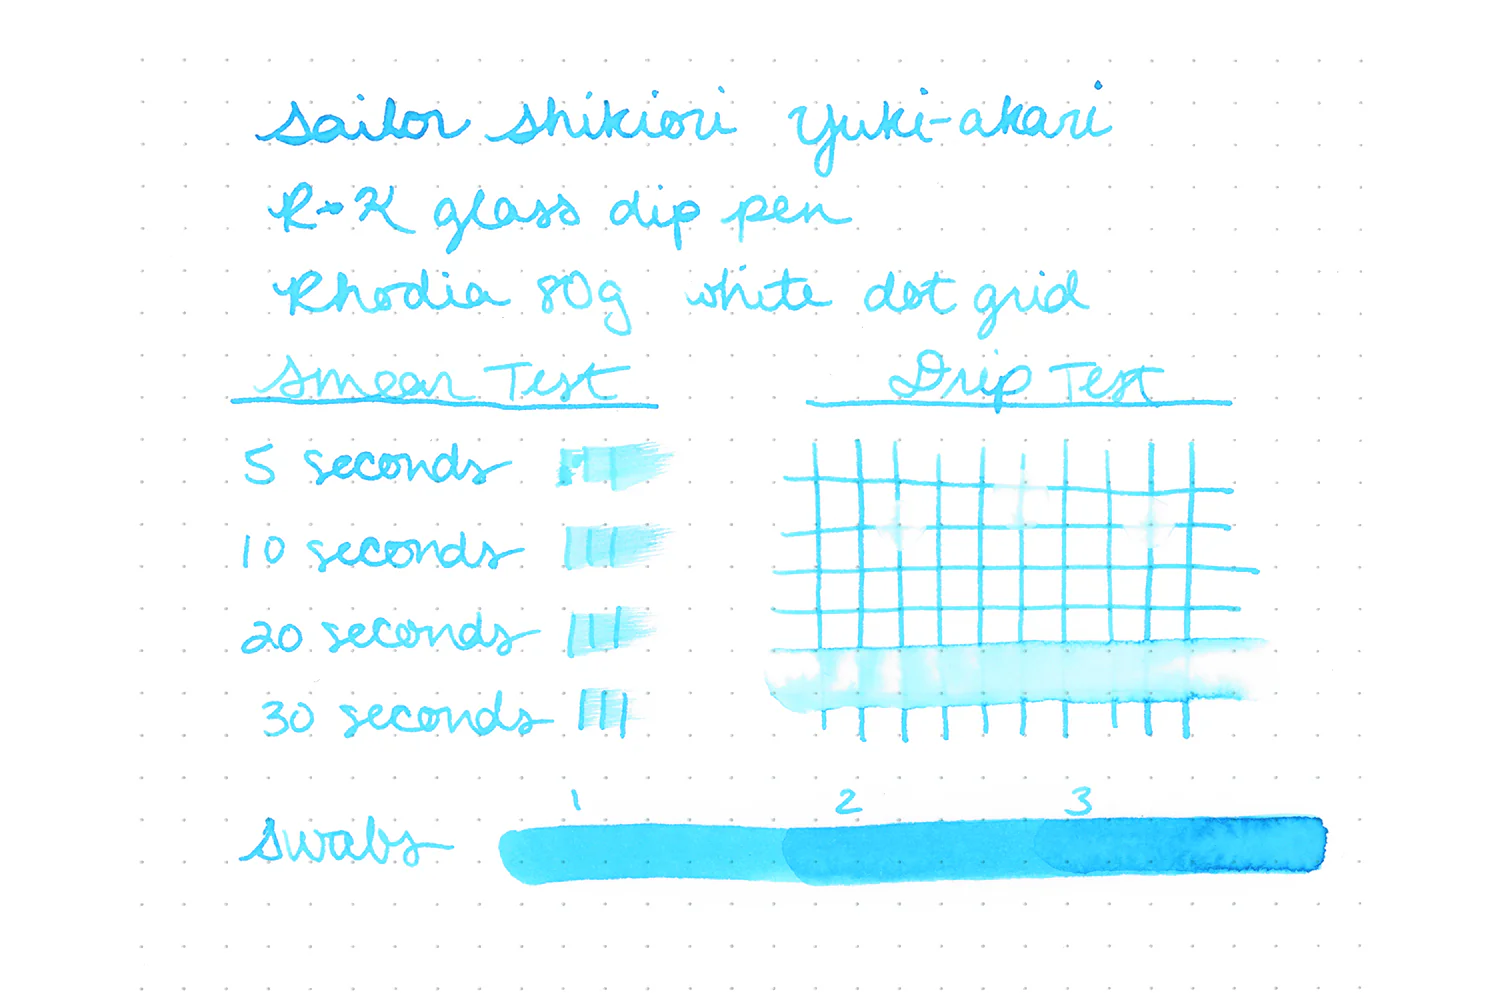 Sailor Shikiori Yuki-akari
R+K glass dip pen
Rhodia 80g white dot grid
Smear Test
5 seconds
10 seconds
20 seconds
30 seconds
Drip Test
Swabs
1 2 3